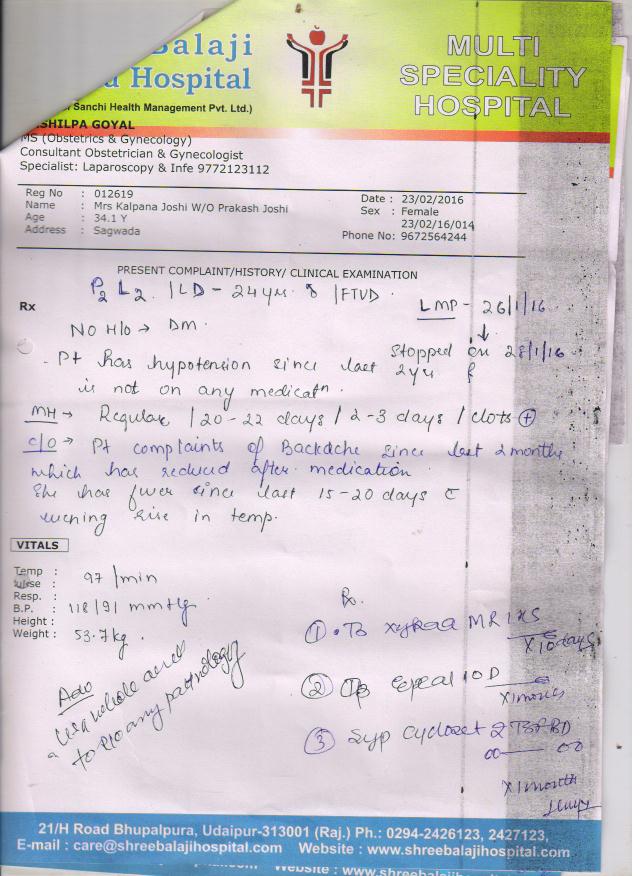 Balaji
Hospital
Sanchi Health Management Pvt. Ltd.)
MULTI
SPECIALITY
HOSPITAL
SHILPA GOYAL
MS (Obstetrics & Gynecology)
Consultant Obstetrician & Gynecologist
Specialist: Laparoscopy & Infe 9772123112
Reg No : 012619
Name : Mrs Kalpana Joshi W/O Prakash Joshi
Age : 34.1 Y
Address : Sagwada
Date : 23/02/2016
Sex : Female
23/02/16/014
Phone No: 9672564244
PRESENT COMPLAINT/HISTORY/ CLINICAL EXAMINATION
P2 L2. | LD - 24yr. | FTVD.
Rx
LMP - 26/1/16
↓
Stopped on 28/1/16
NO H/o → DM.
- Pt has hypotension since last 2yrs &
is not on any medicatn.
MH → Regular / 20-22 days / 2-3 days / clots +
c/o → Pt complaints of Backache since last 2 months
which has reduced after medication.
She has fever since last 15-20 days c
evening rise in temp.
VITALS
Temp :
Pulse : 97/min
Resp. :
B.P. : 118/91 mmHg
Height :
Weight : 53.7kg.
Adv
whole
to r/o any pathology
Rx.
① Tb MR 1 HS
X 10 days
② OD
X 1 month
③ Syp 2 TSF BD
X 1 month
21/H Road Bhupalpura, Udaipur-313001 (Raj.) Ph.: 0294-2426123, 2427123,
E-mail : care@shreebalajihospital.com Website : www.shreebalajihospital.com
Website : www.shreebalajihospital.com